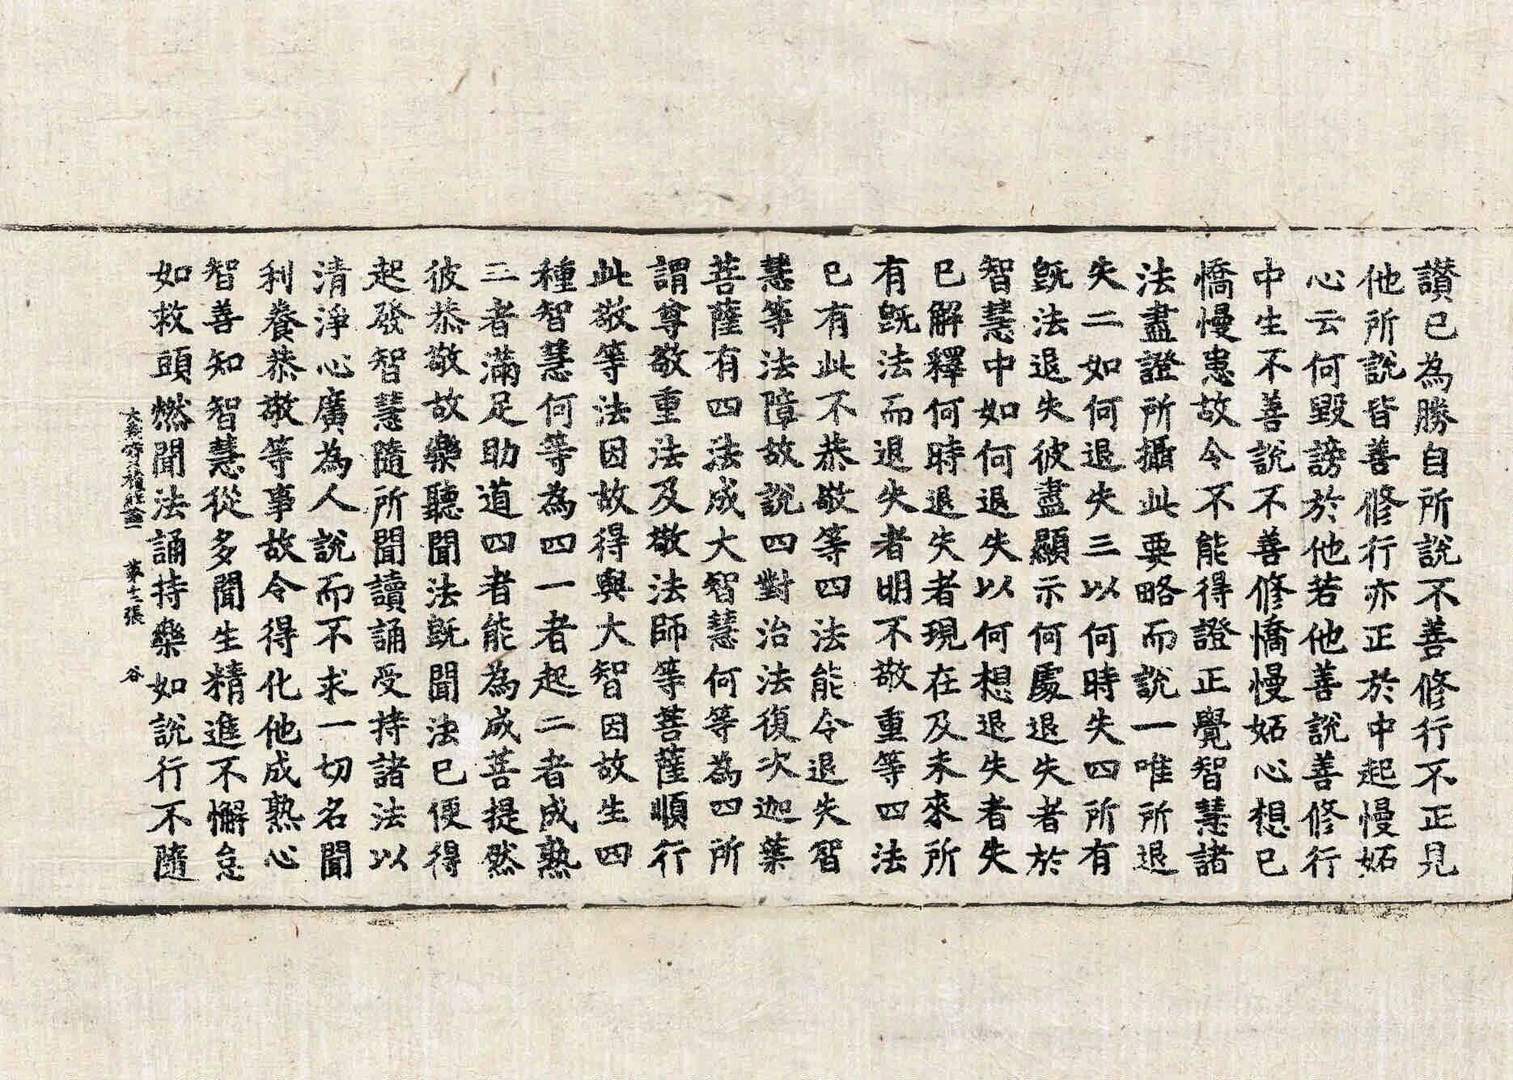 讃已為勝自所說不善修行不正見
他所說皆善修行亦正於中起慢妬
心云何毀謗於他若他善說善修行
中生不善說不善修憍慢妬心想已
憍慢恚故令不能得證正覺智慧諸
法盡證所攝此要略而說一唯所退
失二如何退失三以何時失四所有
旣法退失彼盡顯示何處退失者於
智慧中如何退失以何想退失者失
已解釋何時退失者現在及未來所
有旣法而退失者明不敬重等四法
已有此不恭敬等四法能令退失智
慧等法障故說四對治法復次迦葉
菩薩有四法成大智慧何等為四所
謂尊敬重法及敬法師等菩薩順行
此敬等法因故得與大智因故生四
種智慧何等為四一者起二者成熟
三者滿足助道四者能為成菩提然
彼恭敬故樂聽聞法旣聞法已便得
起發智慧隨所聞讀誦受持諸法以
清淨心廣為人說而不求一切名聞
利養恭敬等事故令得化他成熟心
智善知智慧從多聞生精進不懈怠
如救頭燃聞法誦持樂如說行不隨
大寶積經論 第七張 谷